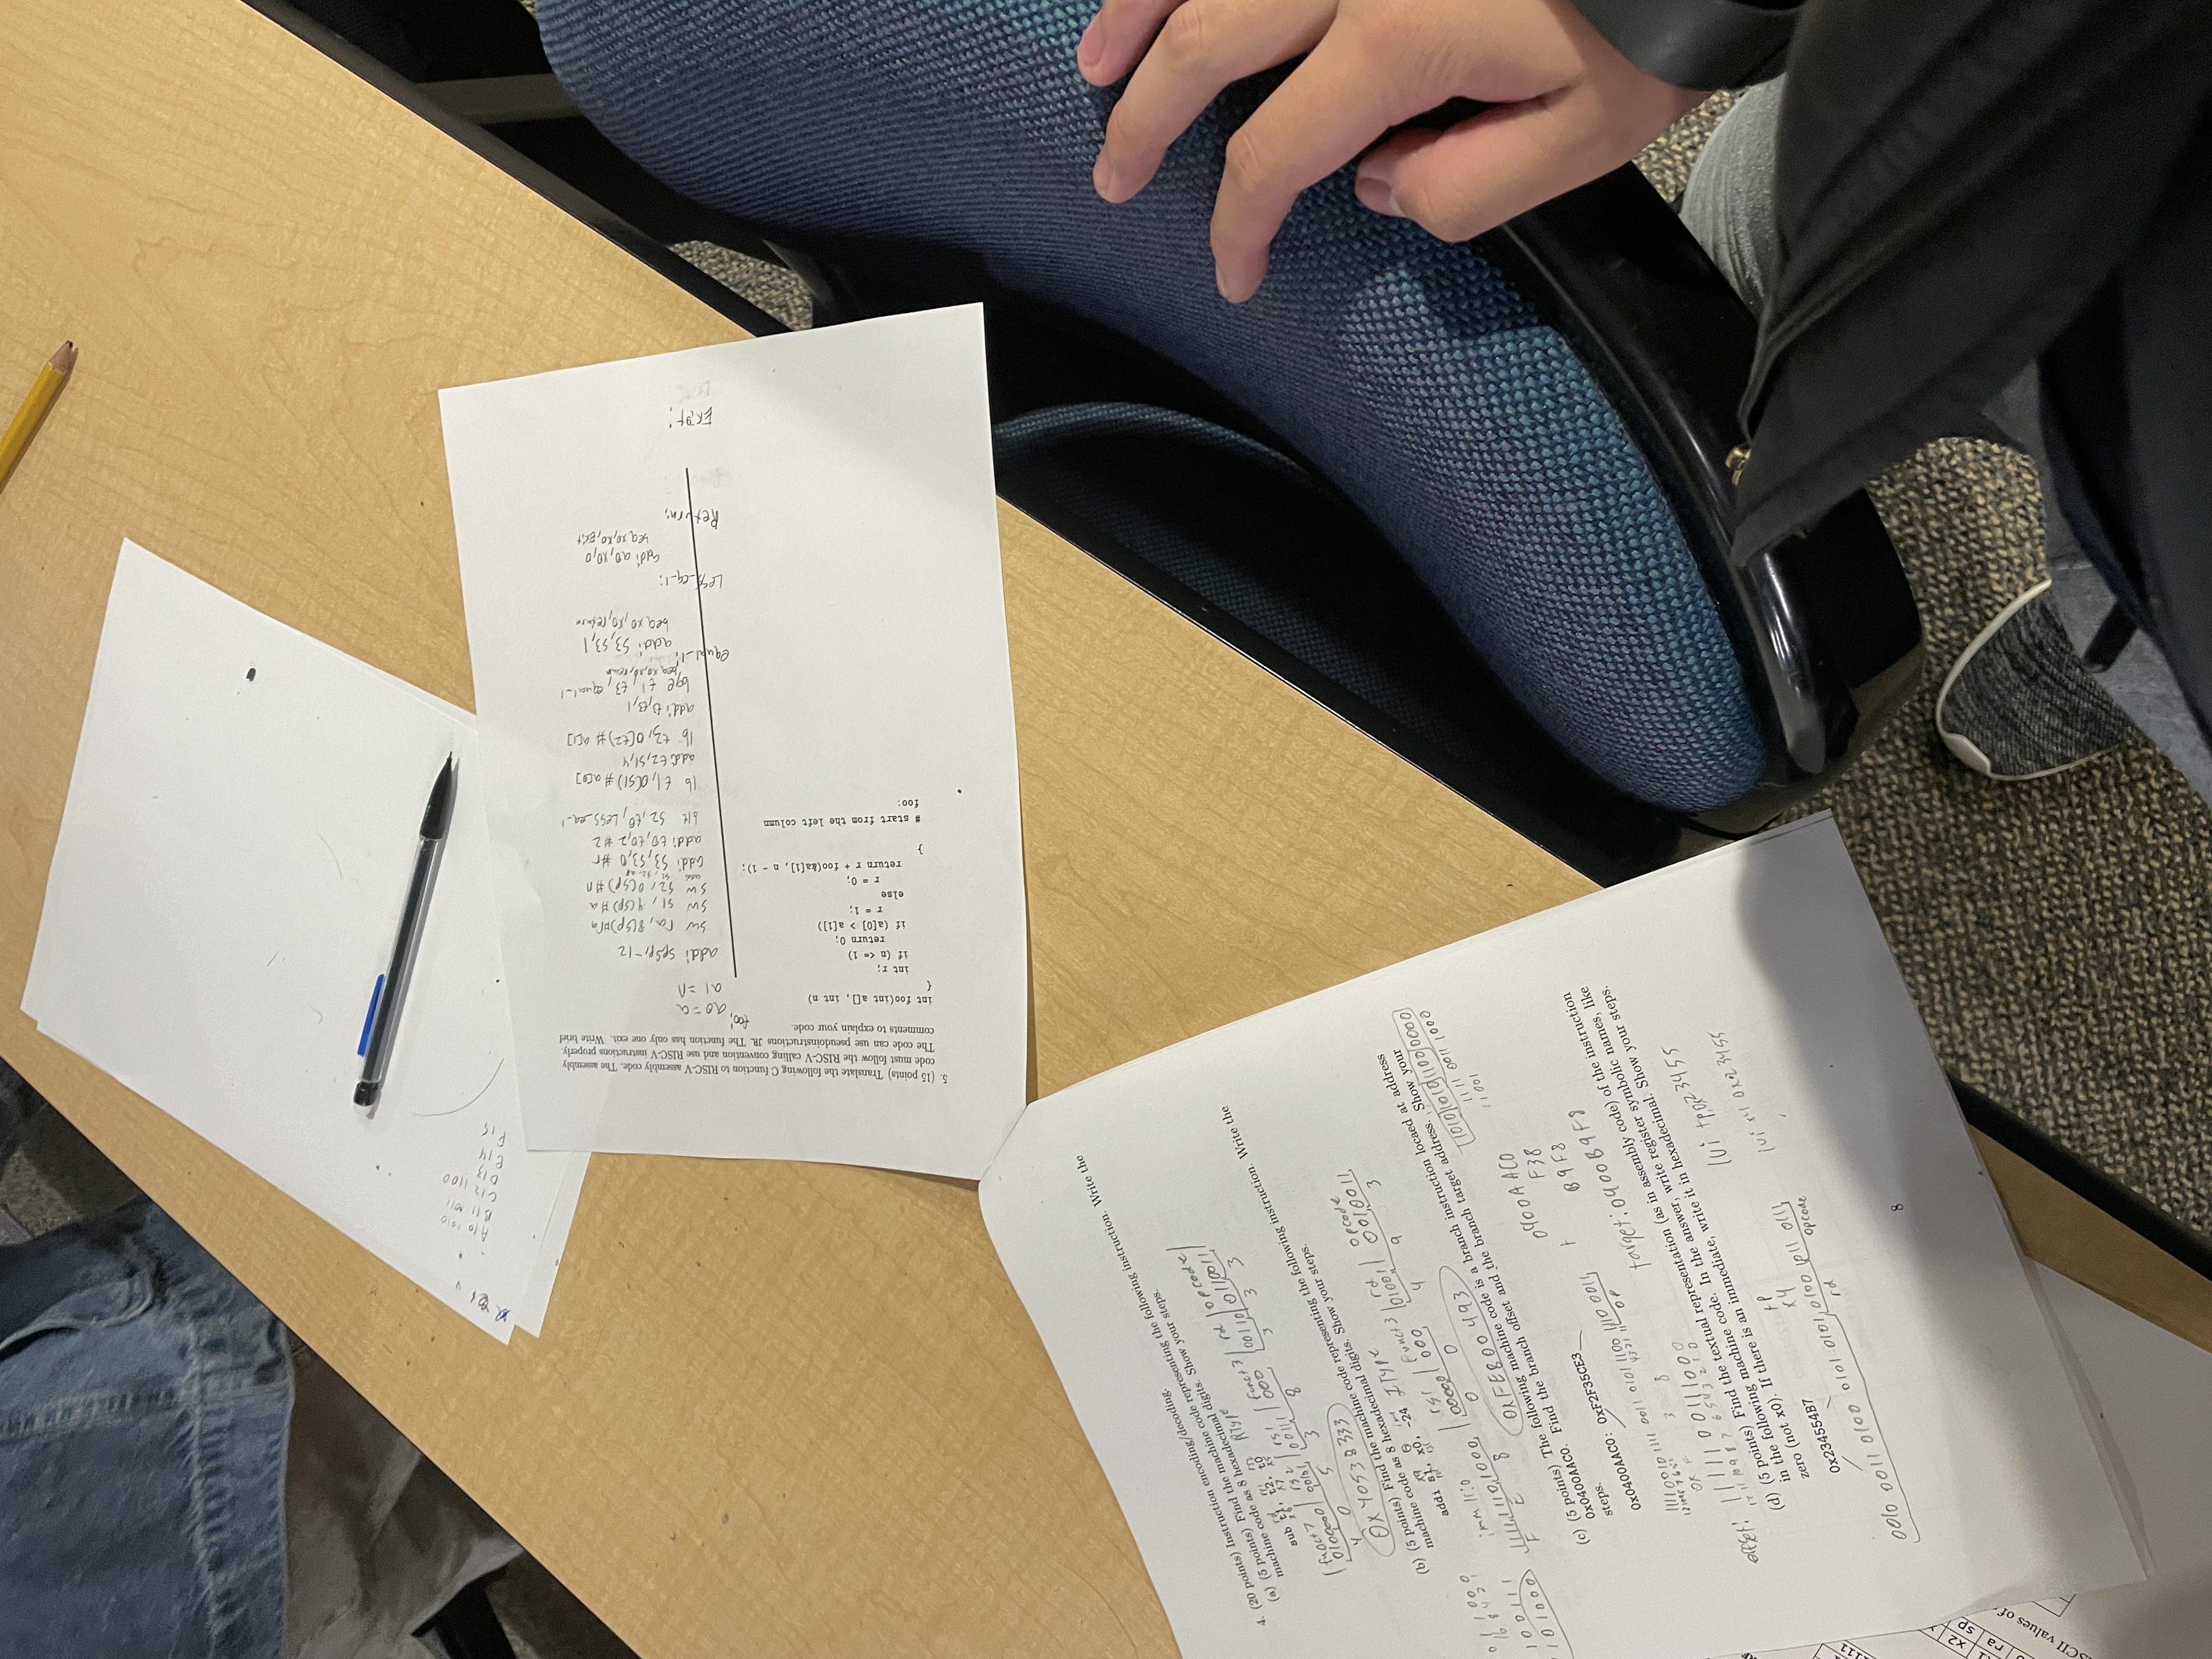 SCII values of
ra
x2
sp
1111
4. (20 points) Instruction encoding/decoding.
(a) (5 points) Find the machine code representing the following instruction. Write the
machine code as 8 hexadecimal digits. Show your steps.
rd rs1 rs2
sub t1, t2, t0 RType
x6 x7 x5
|funct7 | rs2 | rs1 | funct3 | rd | opcode|
0100000 | 00101 | 00111 | 000 | 00110 | 0110011
4 0 5 3 8 3 3 3
0x40538333
(b) (5 points) Find the machine code representing the following instruction. Write the
machine code as 8 hexadecimal digits. Show your steps.
addi s1, x0, -24 IType
imm 11:0 | rs1 | funct3 | rd | opcode
111111101000 | 00000 | 000 | 01001 | 0010011
F E 8 0 0 4 9 3
0xFE800493
(c) (5 points) The following machine code is a branch instruction locaed at address
0X0400AAC0. Find the branch offset and the branch target address. Show your
steps.
0X0400AAC0: 0xF2F35CE3
1111 0010 1111 0011 0101 1100 1110 0011
op
0400AAC0
+ F38
B9F8
target: 0400B9F8
1010101011000000
1111 0011 1000
11001
offset: 1111100111000
12 11 10 9 8 7 6 5 4 3 2 1 0
(d) (5 points) Find the textual representation (as in assembly code) of the instruction
in the following machine code. In the answer, write register symbolic names, like
zero (not x0). If there is an immediate, write it in hexadecimal. Show your steps.
0x234554B7
tp
x4
0010 0011 0100 0101 0101 0100 1011 0111
rd opcode
lui tp, 0x23455
lui x4 0x23455
8
A 10 1010
B 11 1011
C 12 1100
D 13
E 14
F 15
5. (15 points) Translate the following C function to RISC-V assembly code. The assembly
code must follow the RISC-V calling convention and use RISC-V instructions properly.
The code can use pseudoinstructions JR. The function has only one exit. Write brief
comments to explain your code.
int foo(int a[], int n)
{
int r;
if (n <= 1)
return 0;
if (a[0] > a[1])
r = 1;
else
r = 0;
return r + foo(&a[1], n - 1);
}
# start from the left column
foo:
foo:
a0 = a
a1 = n
addi sp, sp, -12
sw ra, 8(sp) #ra
sw s1, 4(sp) # a
sw s2, 0(sp) # n
addi s3, s3, 0 #r
addi t0, t0, 2 #2
blt s2, t0, Less_eq_1
lb t1, 0(s1) # a[0]
addi t2, s1, 4
lb t3, 0(t2) # a[1]
addi t3, t3, 1
bge t1, t3, equal_1
beq x0, x0, return
equal_1:
addi s3, s3, 1
beq x0, x0, return
Less_eq_1:
addi a0, x0, 0
beq x0, x0, Exit
Return:
Exit: